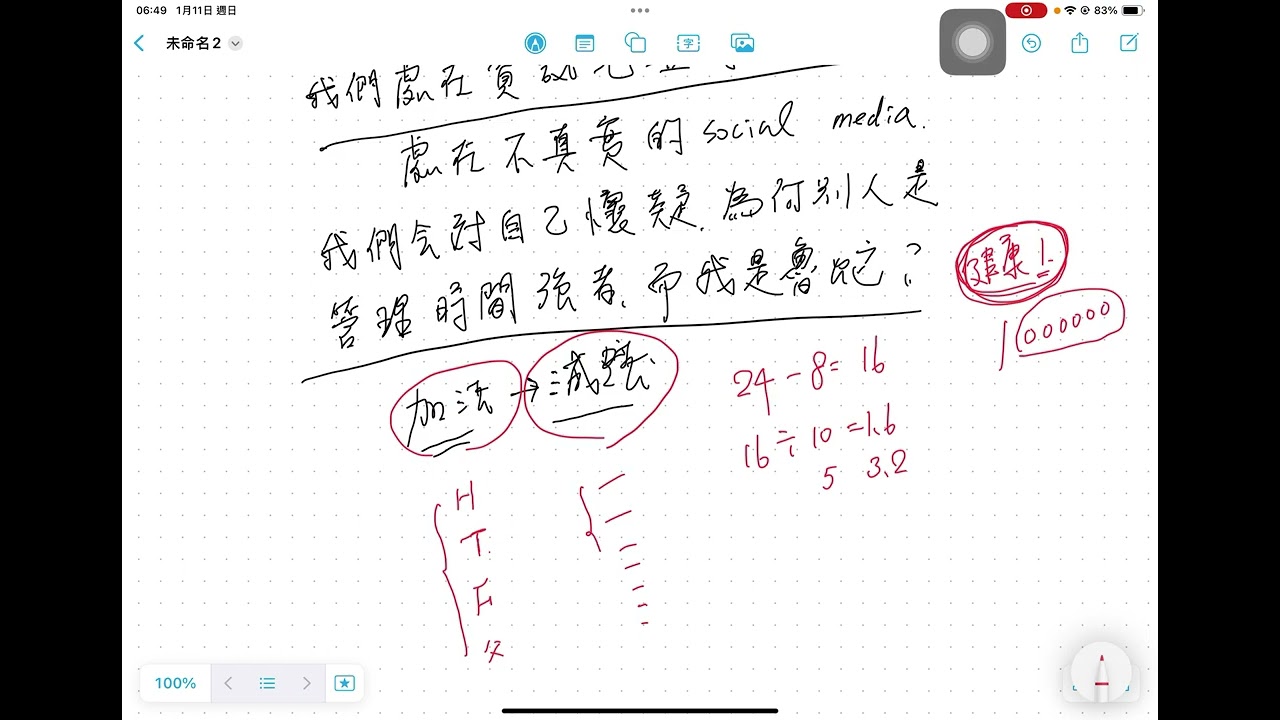 06:49 1月11日 週日
83%
未命名 2
字
我們處在資
處在不真實的 social media.
我們会討自己懷疑. 為何別人是
管理時間強者, 而我是魯蛇?
健康!
1000000
加法 → 減法
24 - 8 = 16
16 ÷ 10 = 1.6
5 3.2
H
T
F
父
100%